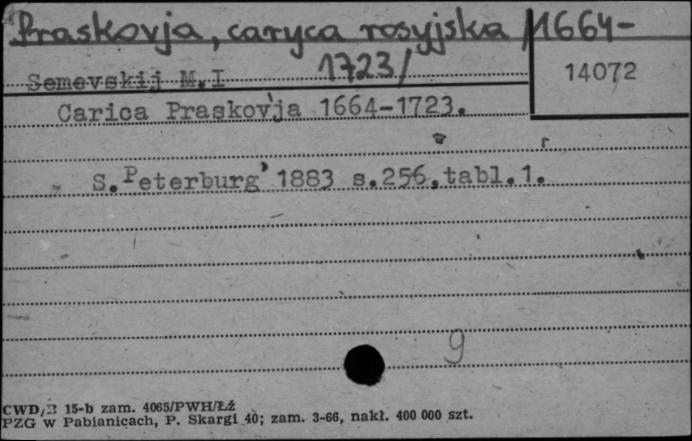 Praskovja, caryca rosyjska /1664-
1723/
Semevskij M.I
14072
Carica Praskov'ja 1664-1723.
S.Peterburg' 1883 s.256,tabl.1.
9
CWD/B 15-b zam. 4065/PWH/Łź
PZG w Pabianicach, P. Skargi 40; zam. 3-66, nakł. 400 000 szt.